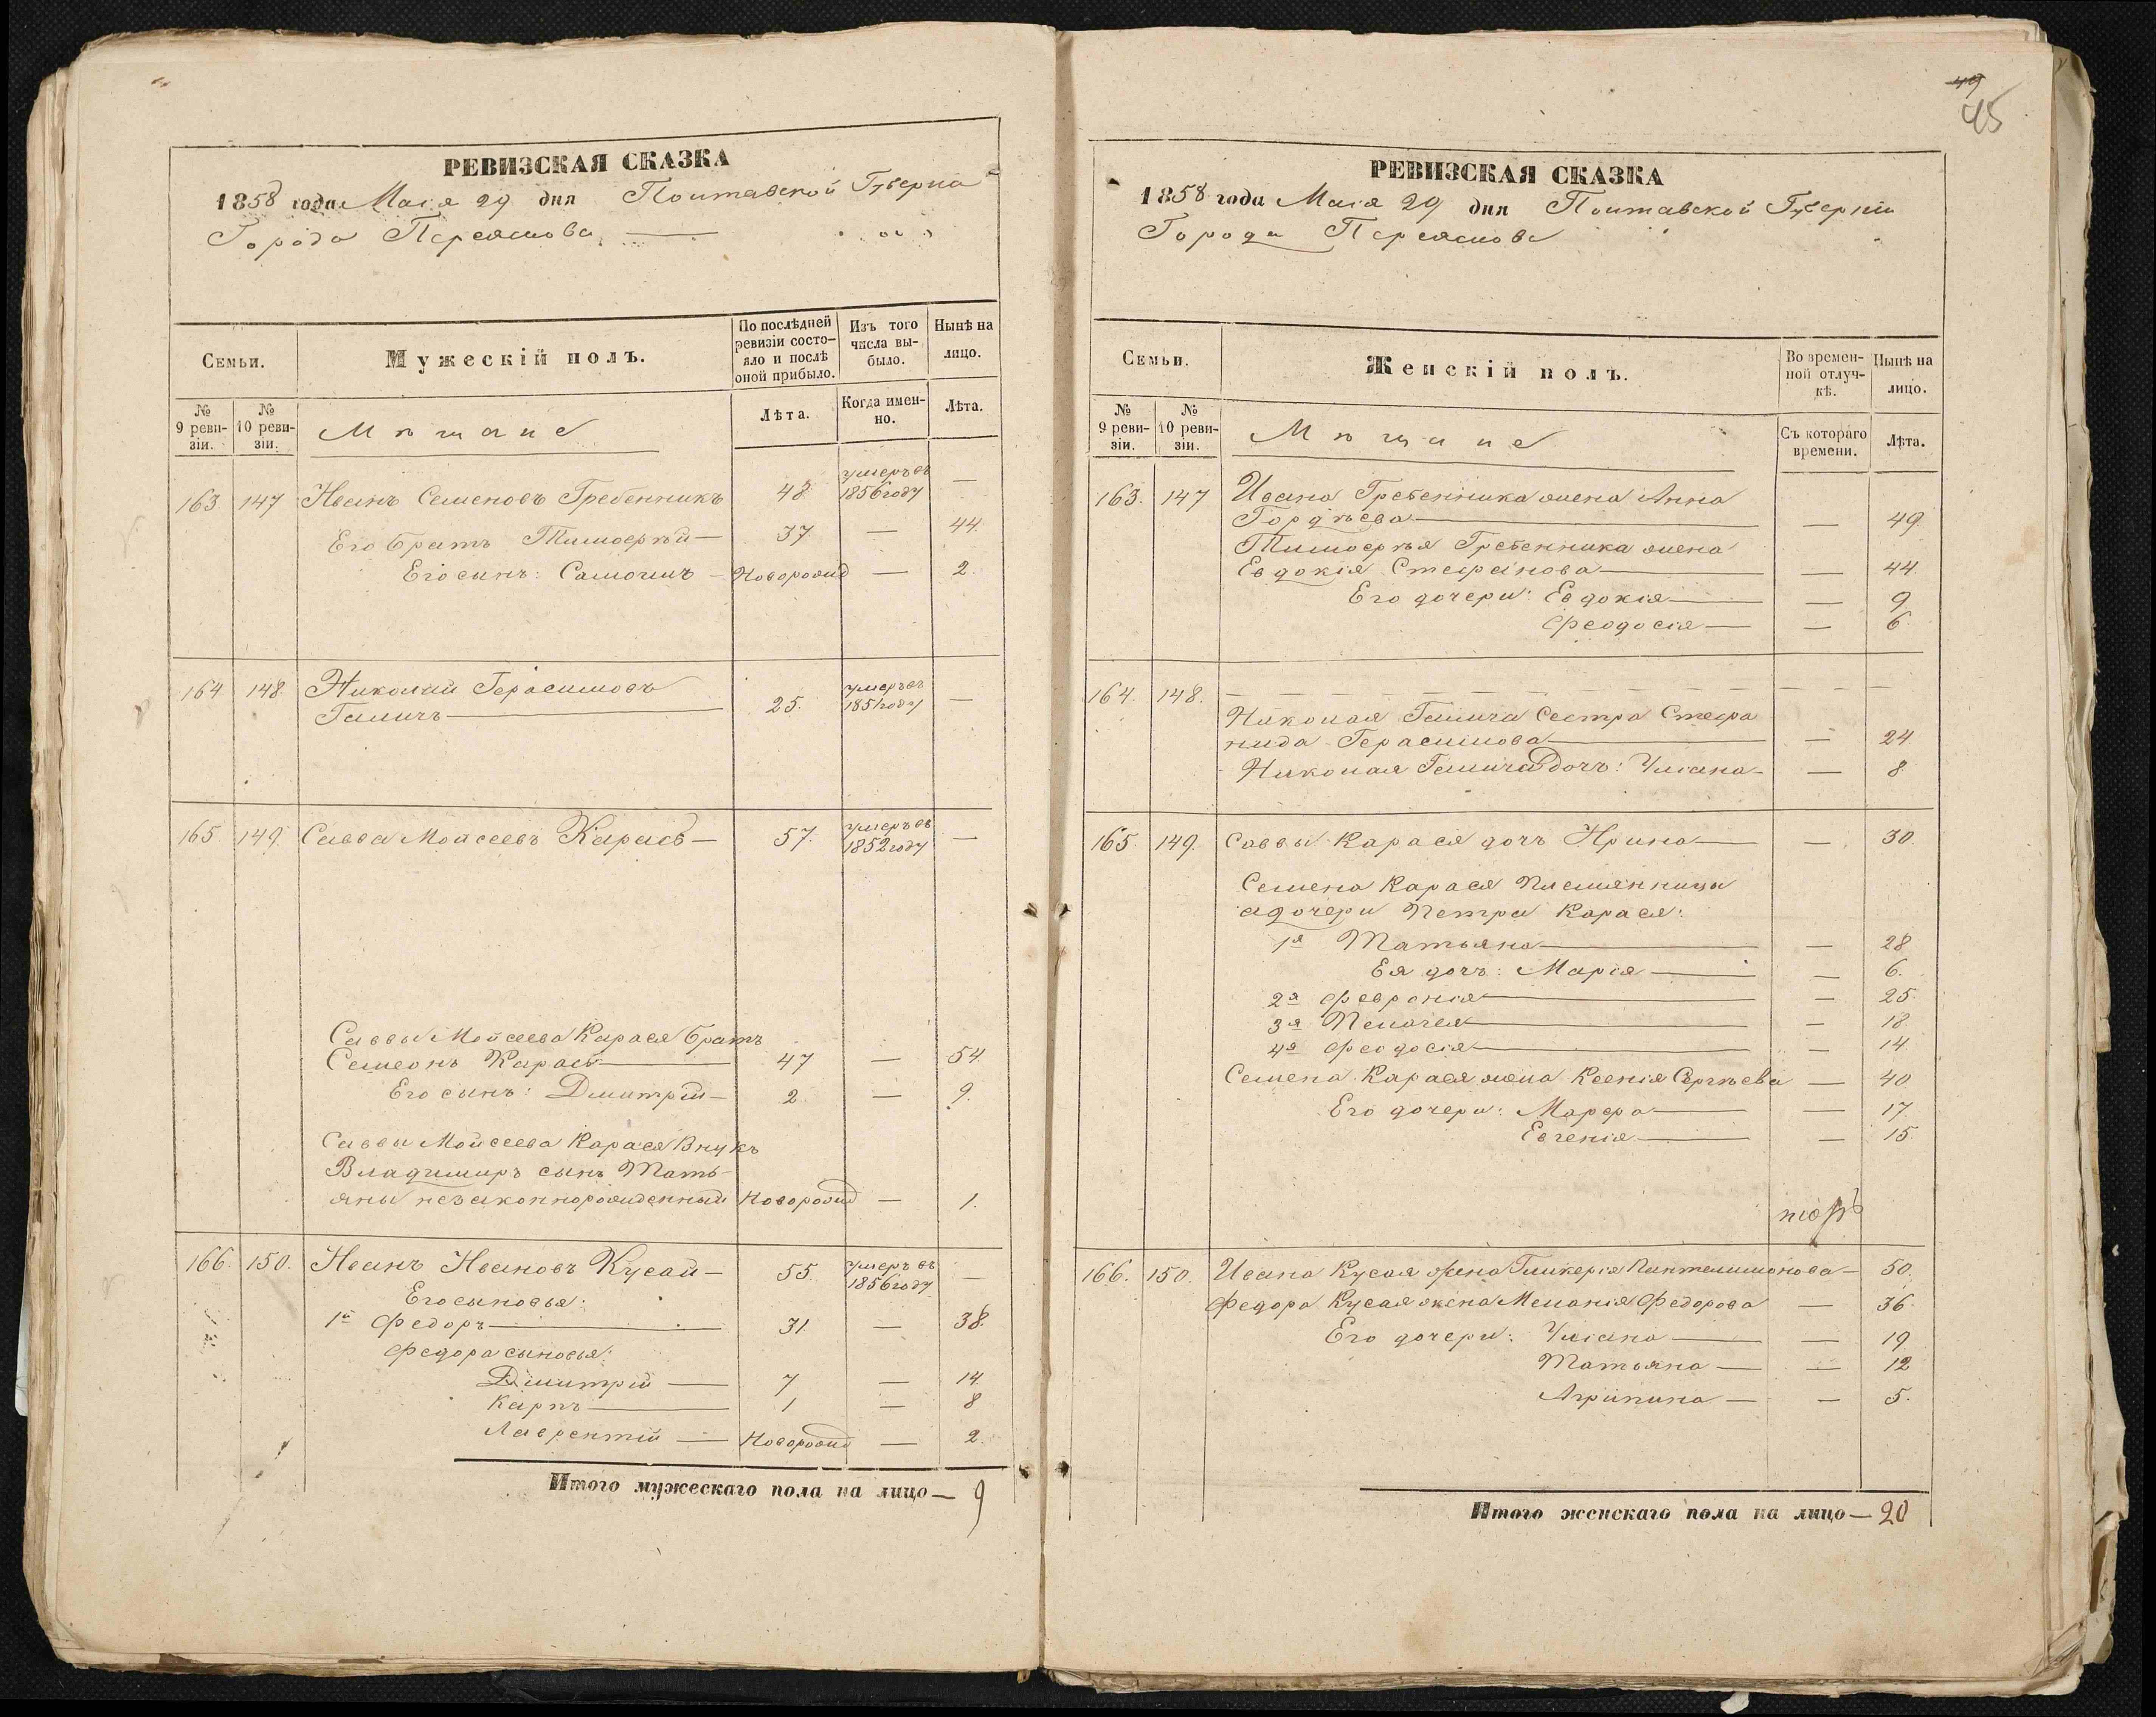 РЕВИЗСКАЯ СКАЗКА
1858 года Маія 29 дня Полтавской Губерніи
Города Переяслова
Семьи.
Мужескій полъ.
По послѣдней ревизіи состояло и послѣ оной прибыло.
Изъ того числа выбыло.
Нынѣ на лицо.
№ 9 ревизіи.
№ 10 ревизіи.
Мѣщане
Лѣта.
Когда именно.
Лѣта.
163. 147 Иванъ Семеновъ Гребенникъ 48 умеръ въ 1856 году —
Его братъ Тимоѳѣй — 37 — 44.
Его сынъ: Самоилъ — Новорожд — 2.
164 148. Николай Герасимовъ
Галичъ — 25. умеръ въ 1851 году —
165. 149. Савва Мойсеевъ Карась — 57. умеръ въ 1852 году —
Саввы Мойсеева Карася братъ
Семеонъ Карась — 47 — 54.
Его сынъ: Дмитрій — 2 — 9.
Саввы Мойсеева Карася Внукъ
Владимиръ сынъ Тать-
яны незаконнорожденный Новорожд — 1.
166. 150. Иванъ Ивановъ Кусай — 55. умеръ въ 1856 году —
Его сыновья:
1й Федоръ — 31. — 38.
Федора сыновья:
Дмитрій — 7 — 14.
Карпъ — 1 — 8
Лаврентій — Новорожд — 2.
Итого мужескаго пола на лицо — 9
49
45
РЕВИЗСКАЯ СКАЗКА
1858 года Маія 29 дня Полтавской Губерніи
Города Переяслова
Семьи.
Женскій полъ.
Во временной отлучкѣ.
Нынѣ на лицо.
№ 9 ревизіи.
№ 10 ревизіи.
Мѣщане
Съ котораго времени.
Лѣта.
163. 147 Ивана Гребенника жена Анна
Гордѣева — — 49.
Тимоѳѣя Гребенника жена
Евдокія Стефанова — — 44.
Его дочери: Евдокія — — 9
Феодосія — — 6
164. 148. — — — — — — — — — — — —
Николая Галича Сестра Стефа
нида Герасимова — — 24
Николая Галича дочь: Уліана — — 8
165. 149. Саввы Карася дочь Ирина — — 30.
Семена Карася Племянницы
а дочери Петра Карася:
1я Татьяна — — 28
Ея дочь: Марія — — 6.
2я Февронія — — 25.
3я Пелагея — — 18.
4я Феодосія — — 14.
Семена Карася жена Ксенія Сергѣева — 40.
Его дочери: Марфа — — 17.
Евгенія — — 15.
166. 150. Ивана Кусая жена Гликерія Пантелимонова — 50.
Федора Кусая жена Меланія Федорова — 36.
Его дочери: Уліана — — 19
Татьяна — — 12
Агрипина — — 5.
Итого женскаго пола на лицо — 20